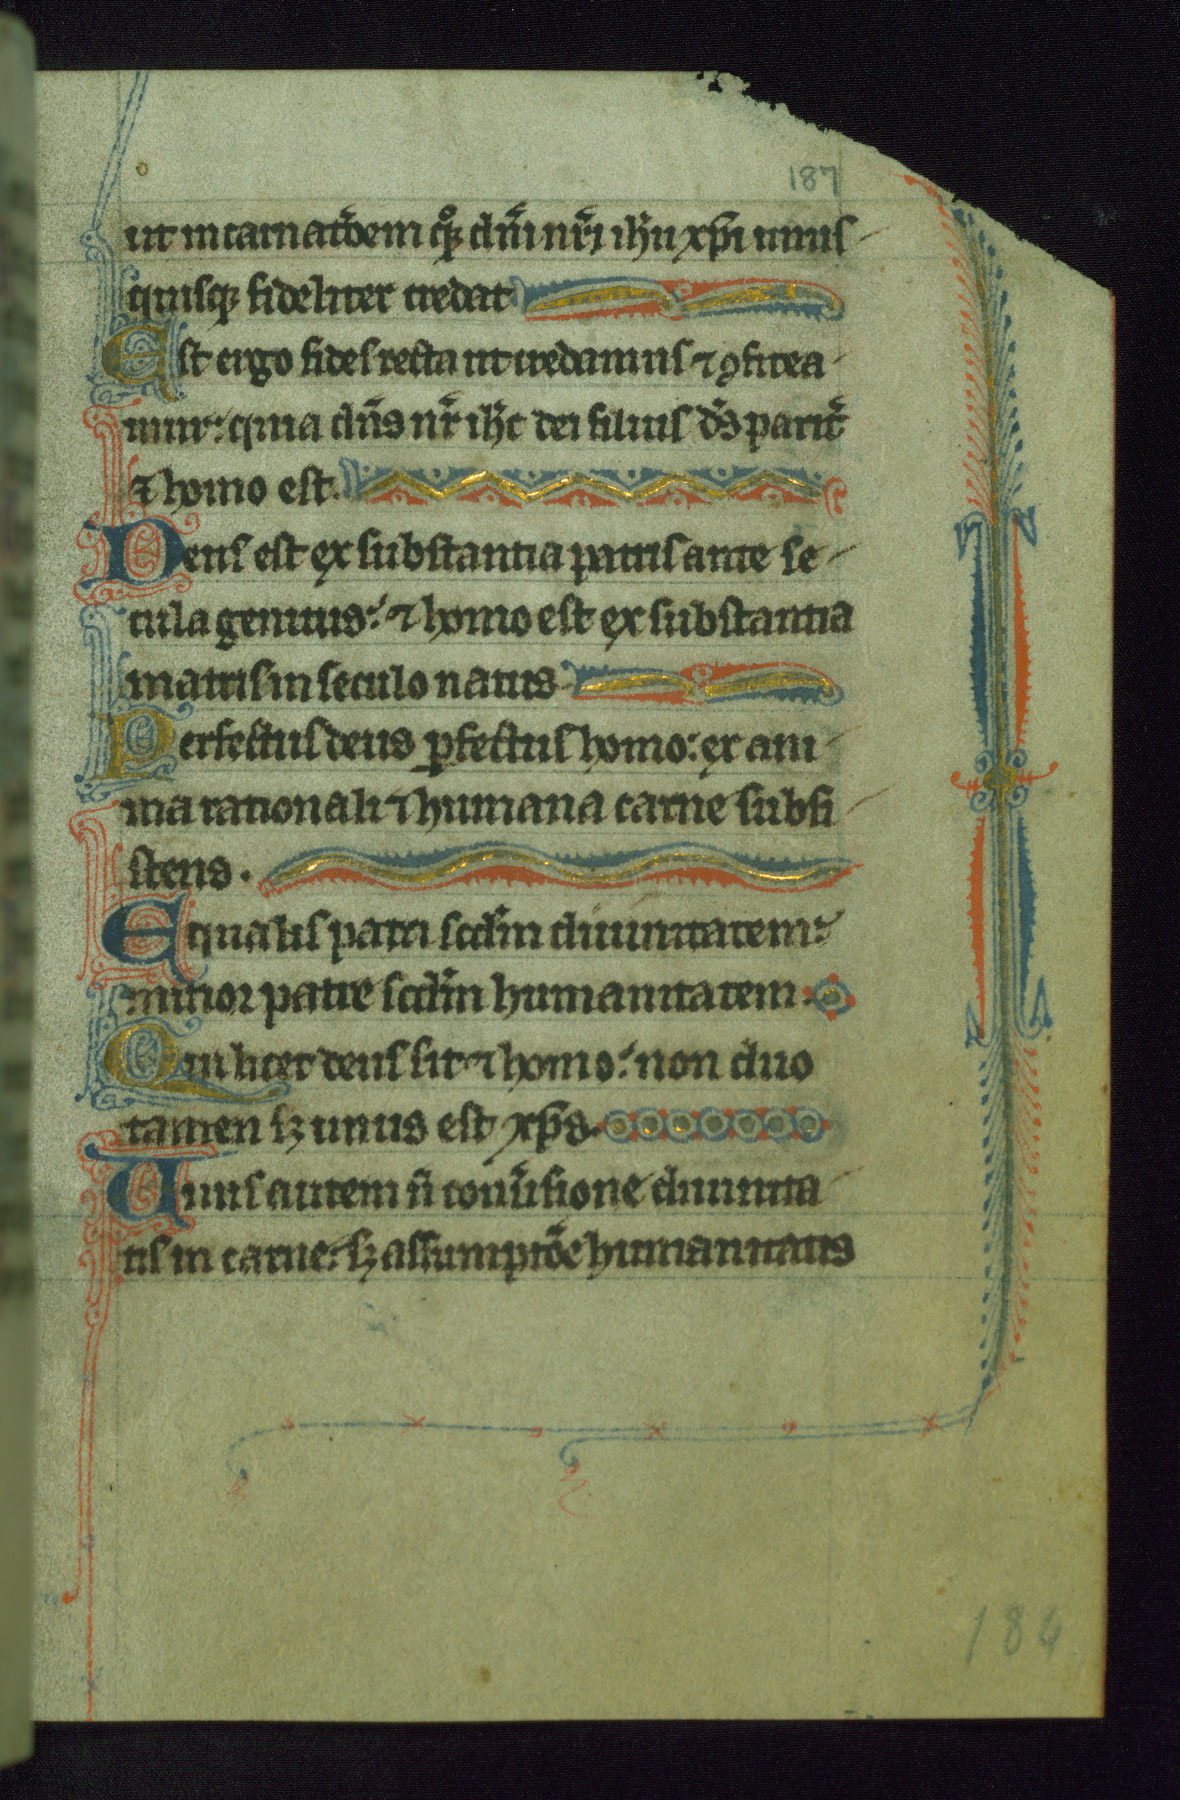 187
ut incarnatōem qᷤꝫ dñi nr̄i ih̄u xp̄i unus
quisqꝫ fideliter credat
Est ergo fides recta ut credamus ⁊ ꝯfitea
mur: quia dn̄s nr̄ ih̄c dei filius ds̄ parit̄
⁊ homo est.
Deus est ex substantia patris ante se
cula genitus: ⁊ homo est ex substantia
matris in seculo natus
Perfectus deus ꝑfectus homo: ex ani
ma rationali ⁊ humana carne subsi
stens.
Equalis patri scdm̄ diuinitatem:
minor patre scdm̄ humanitatem.
Qui licet deus sit ⁊ homo: non duo
tamen sꝫ unus est xp̄s.
Unus autem n̄ conūsione diuinita
tis in carne: sꝫ assumptōe humanitatis
184